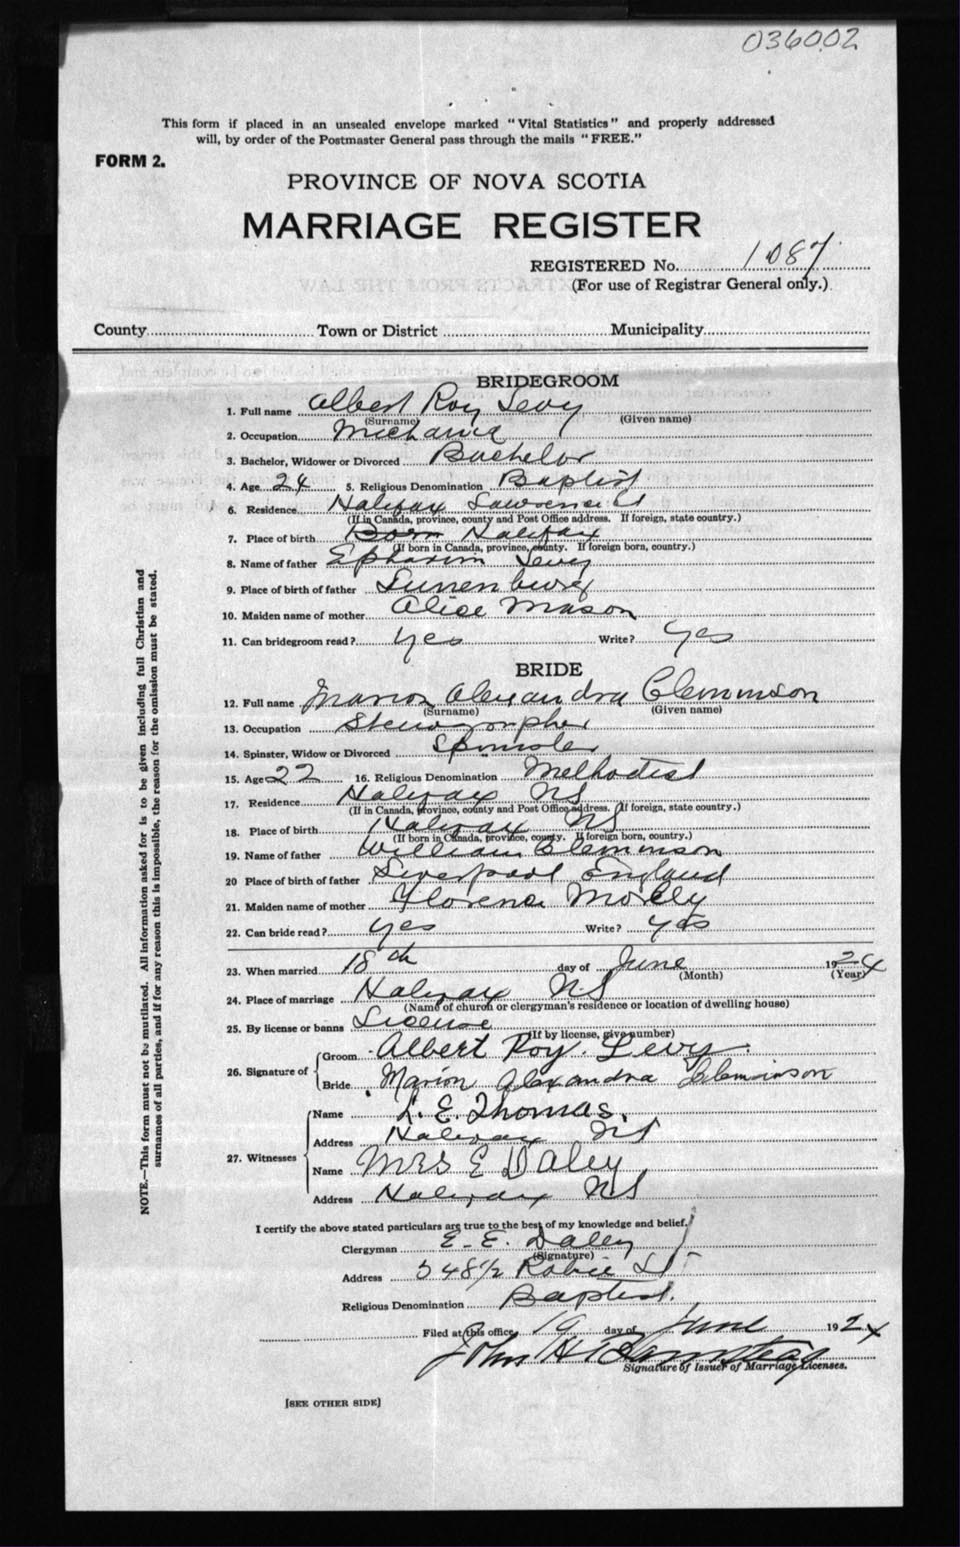 036002
This form if placed in an unsealed envelope marked "Vital Statistics" and properly addressed
will, by order of the Postmaster General pass through the mails "FREE."
FORM 2.
PROVINCE OF NOVA SCOTIA
MARRIAGE REGISTER
REGISTERED No. 1087
(For use of Registrar General only.)
County Town or District Municipality
BRIDEGROOM
1. Full name Albert Roy Levy
(Surname) (Given name)
2. Occupation Mechanic
3. Bachelor, Widower or Divorced Bachelor
4. Age 24 5. Religious Denomination Baptist
6. Residence Halifax Lawrence St
(If in Canada, province, county and Post Office address. If foreign, state country.)
7. Place of birth Born Halifax
(If born in Canada, province, county. If foreign born, country.)
8. Name of father Ephraim Levy
9. Place of birth of father Lunenburg
10. Maiden name of mother Alice Mason
11. Can bridegroom read? Yes Write? Yes
BRIDE
12. Full name Marion Alexandra Clemmson
(Surname) (Given name)
13. Occupation Stenographer
14. Spinster, Widow or Divorced Spinster
15. Age 22 16. Religious Denomination Methodist
17. Residence Halifax NS
(If in Canada, province, county and Post Office address. If foreign, state country.)
18. Place of birth Halifax NS
(If born in Canada, province, county. If foreign born, country.)
19. Name of father William Clemmson
20 Place of birth of father Liverpool England
21. Maiden name of mother Florence
22. Can bride read? Yes Write? Yes
23. When married 18th day of June 1924
(Month) (Year)
24. Place of marriage Halifax NS
(Name of church or clergyman's residence or location of dwelling house)
25. By license or banns License
(If by license, give number)
26. Signature of Groom Albert Roy Levy.
Bride Marion Alexandra Clemmson
27. Witnesses Name L. E. Thomas.
Address Halifax NS
Name Mrs E Daley
Address Halifax NS
I certify the above stated particulars are true to the best of my knowledge and belief.
Clergyman E. E. Daley
(Signature)
Address 548 1/2 Robie St
Religious Denomination Baptist.
Filed at this office 19 day of June 1924
John H
Signature of Issuer of Marriage Licenses.
[SEE OTHER SIDE]
NOTE.—This form must not be mutilated. All information asked for is to be given including full Christian and
surnames of all parties, and if for any reason this is impossible, the reason for the omission must be stated.